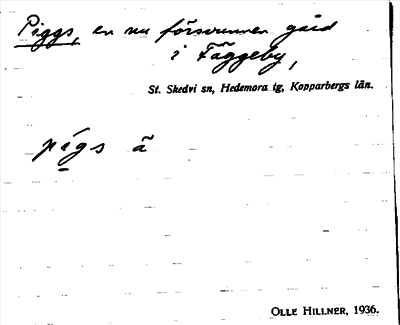 Piggs, en nu försvunnen gård
i Fäggeby,
St. Skedvi sn, Hedemora tg, Kopparbergs län.
pígs ã
OLLE HILLNER, 1936.